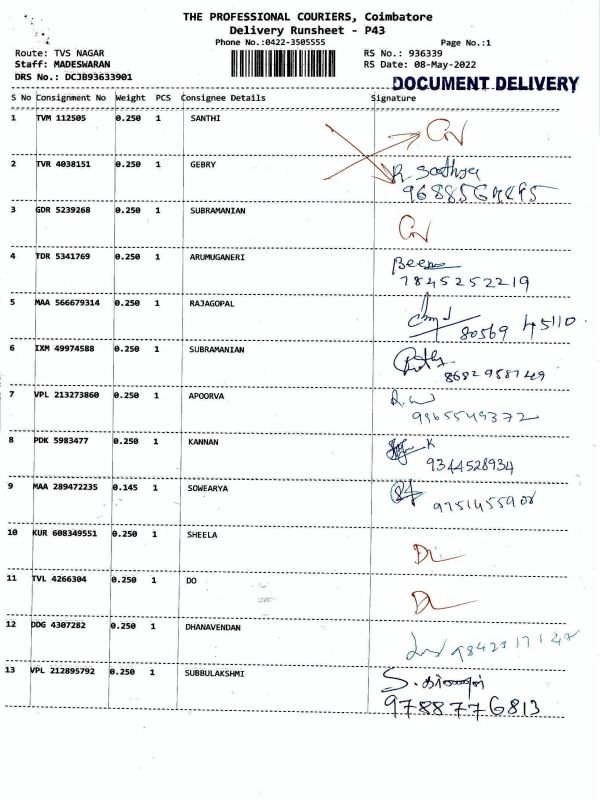 THE PROFESSIONAL COURIERS, Coimbatore
Delivery Runsheet - P43
Phone No.:0422-3505555 Page No.:1
Route: TVS NAGAR RS No.: 936339
Staff: MADESWARAN RS Date: 08-May-2022
DRS No.: DCJB93633901
DOCUMENT DELIVERY
S No Consignment No Weight PCS Consignee Details Signature
1 TVM 112505 0.250 1 SANTHI
2 TVR 4038151 0.250 1 GEBRY
3 GDR 5239268 0.250 1 SUBRAMANIAN
4 TDR 5341769 0.250 1 ARUMUGANERI Beena
7845252219
5 MAA 566679314 0.250 1 RAJAGOPAL
80569 45110
6 IXM 49974588 0.250 1 SUBRAMANIAN
7 VPL 213273860 0.250 1 APOORVA
9965549372
8 PDK 5983477 0.250 1 KANNAN K
9344528934
9 MAA 289472235 0.145 1 SOWEARYA
10 KUR 608349551 0.250 1 SHEELA
11 TVL 4266304 0.250 1 DO
12 DDG 4307282 0.250 1 DHANAVENDAN
13 VPL 212895792 0.250 1 SUBBULAKSHMI
9788776813